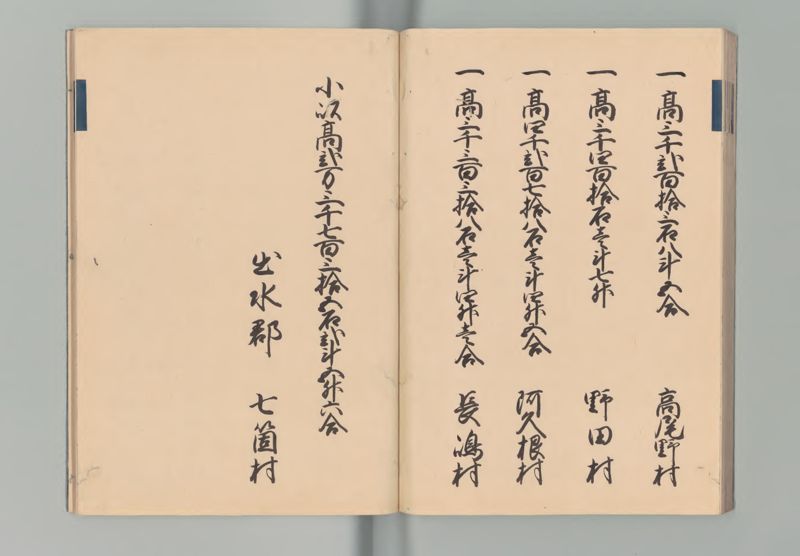 一高三千弐百拾三石八斗五合 高尾野村
一高三千四百拾石壱斗七升 野田村
一高四千弐百七拾八石壱斗四升五合 阿久根村
一高三千三百三拾八石壱斗四升壱合 長嶋村
小以高弐万三千七百三拾五石弐斗五升六合
出水郡 七箇村